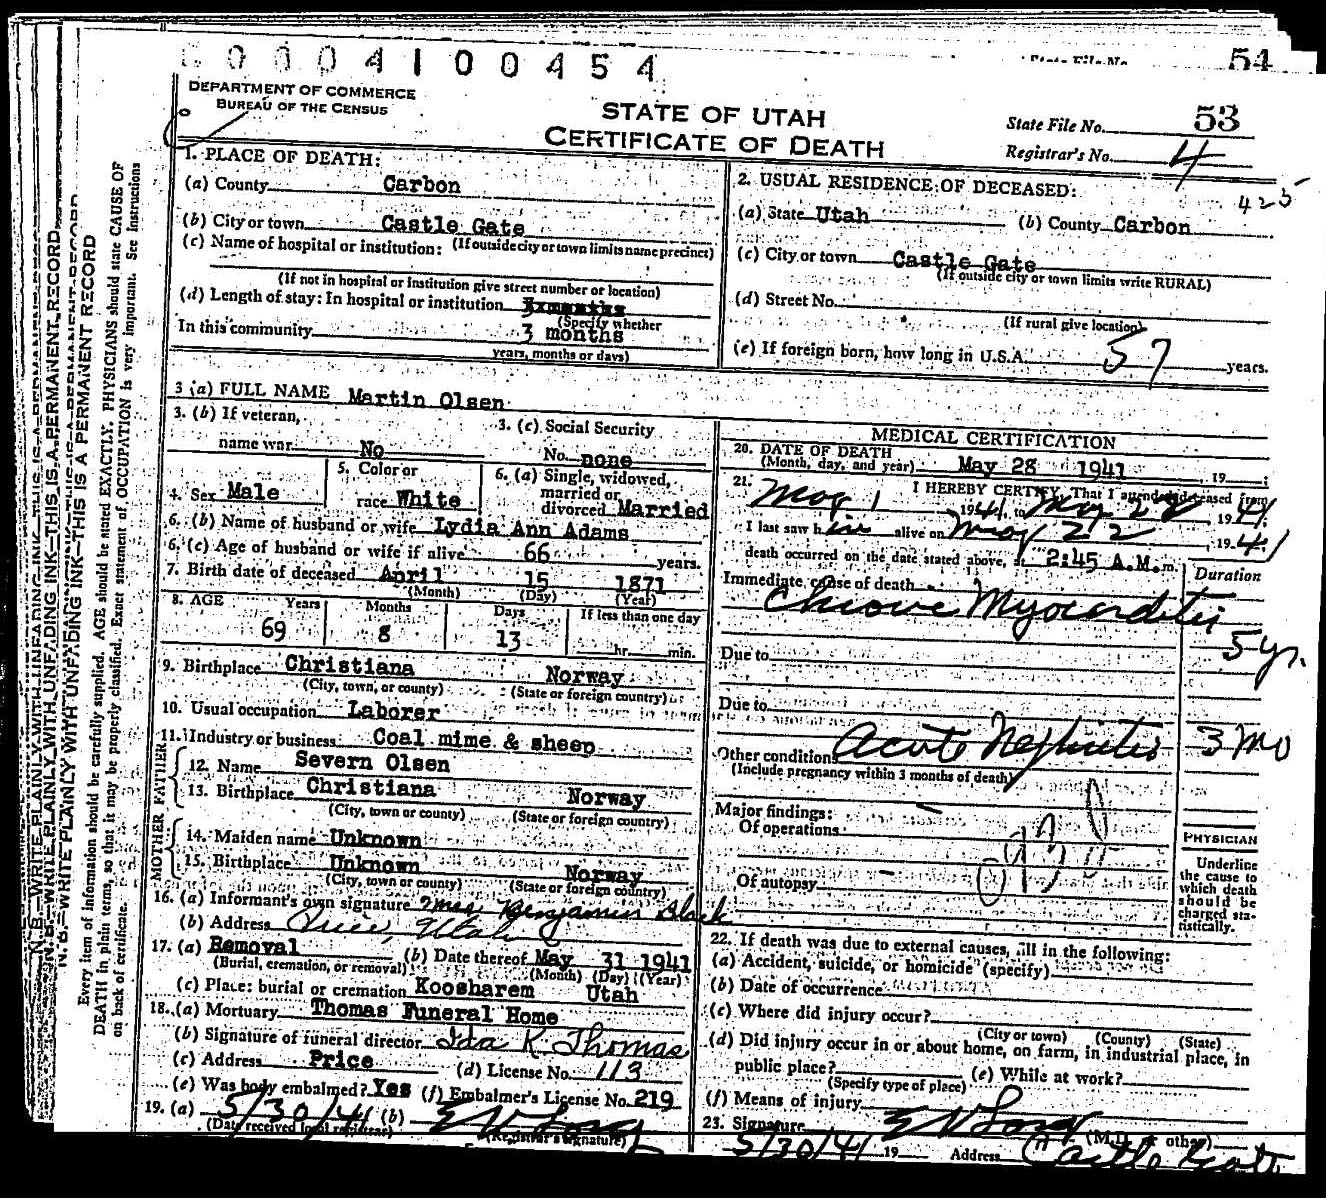 0004100454
State File No. 54
DEPARTMENT OF COMMERCE
BUREAU OF THE CENSUS
STATE OF UTAH
CERTIFICATE OF DEATH
State File No. 53
Registrar's No. 4
425
N. B.—WRITE PLAINLY WITH UNFADING INK—THIS IS A PERMANENT RECORD
Every item of information should be carefully supplied. AGE should be stated EXACTLY. PHYSICIANS should state CAUSE OF
DEATH in plain terms, so that it may be properly classified. Exact statement of OCCUPATION is very important. See Instructions
on back of certificate.
1. PLACE OF DEATH:
(a) County Carbon
(b) City or town Castle Gate
(If outside city or town limits name precinct)
(c) Name of hospital or institution:
(If not in hospital or institution give street number or location)
(d) Length of stay: In hospital or institution
(Specify whether
In this community 3 months
years, months or days)
2. USUAL RESIDENCE OF DECEASED:
(a) State Utah (b) County Carbon
(c) City or town Castle Gate
(If outside city or town limits write RURAL)
(d) Street No.
(If rural give location)
(e) If foreign born, how long in U.S.A. 57 years.
3 (a) FULL NAME Martin Olsen
3. (b) If veteran,
name war No
3. (c) Social Security
No. none
4. Sex Male
5. Color or
race White
6. (a) Single, widowed,
married or
divorced Married
6. (b) Name of husband or wife Lydia Ann Adams
6. (c) Age of husband or wife if alive 66 years.
7. Birth date of deceased April 15 1871
(Month) (Day) (Year)
8. AGE Years Months Days If less than one day
69 8 13 hr. min.
9. Birthplace Christiana Norway
(City, town, or county) (State or foreign country)
10. Usual occupation Laborer
11. Industry or business Coal mime & sheep
FATHER
12. Name Severn Olsen
13. Birthplace Christiana Norway
(City, town or county) (State or foreign country)
MOTHER
14. Maiden name Unknown
15. Birthplace Unknown Norway
(City, town or county) (State or foreign country)
16. (a) Informant's own signature Mrs. Benjamin Black
(b) Address Price, Utah
17. (a) Removal (b) Date thereof May 31 1941
(Burial, cremation, or removal) (Month) (Day) (Year)
(c) Place: burial or cremation Koosharem Utah
18. (a) Mortuary Thomas Funeral Home
(b) Signature of funeral director Ida K. Thomas
(c) Address Price (d) License No. 113
(e) Was body embalmed? Yes (f) Embalmer's License No. 219
19. (a) 5/30/41 (b)
(Date received local registrar) (Registrar's signature)
MEDICAL CERTIFICATION
20. DATE OF DEATH
(Month, day, and year) May 28 1941, 19
21. I HEREBY CERTIFY, That I attended deceased from
May 1 1941, to May 28 1941.
I last saw him alive on May 22, 1941;
death occurred on the date stated above, at 2:45 A.M. m.
Duration
Immediate cause of death
Chronic Myocarditis 5 yr.
Due to
Due to
Other conditions Acute Nephritis 3 mo
(Include pregnancy within 3 months of death)
Major findings:
Of operations
Of autopsy
PHYSICIAN
Underline
the cause to
which death
should be
charged sta-
tistically.
22. If death was due to external causes, fill in the following:
(a) Accident, suicide, or homicide (specify)
(b) Date of occurrence
(c) Where did injury occur?
(City or town) (County) (State)
(d) Did injury occur in or about home, on farm, in industrial place, in
public place? (e) While at work?
(Specify type of place)
(f) Means of injury
23. Signature (M.D. or other)
5/30/41 19 Address Castle Gate